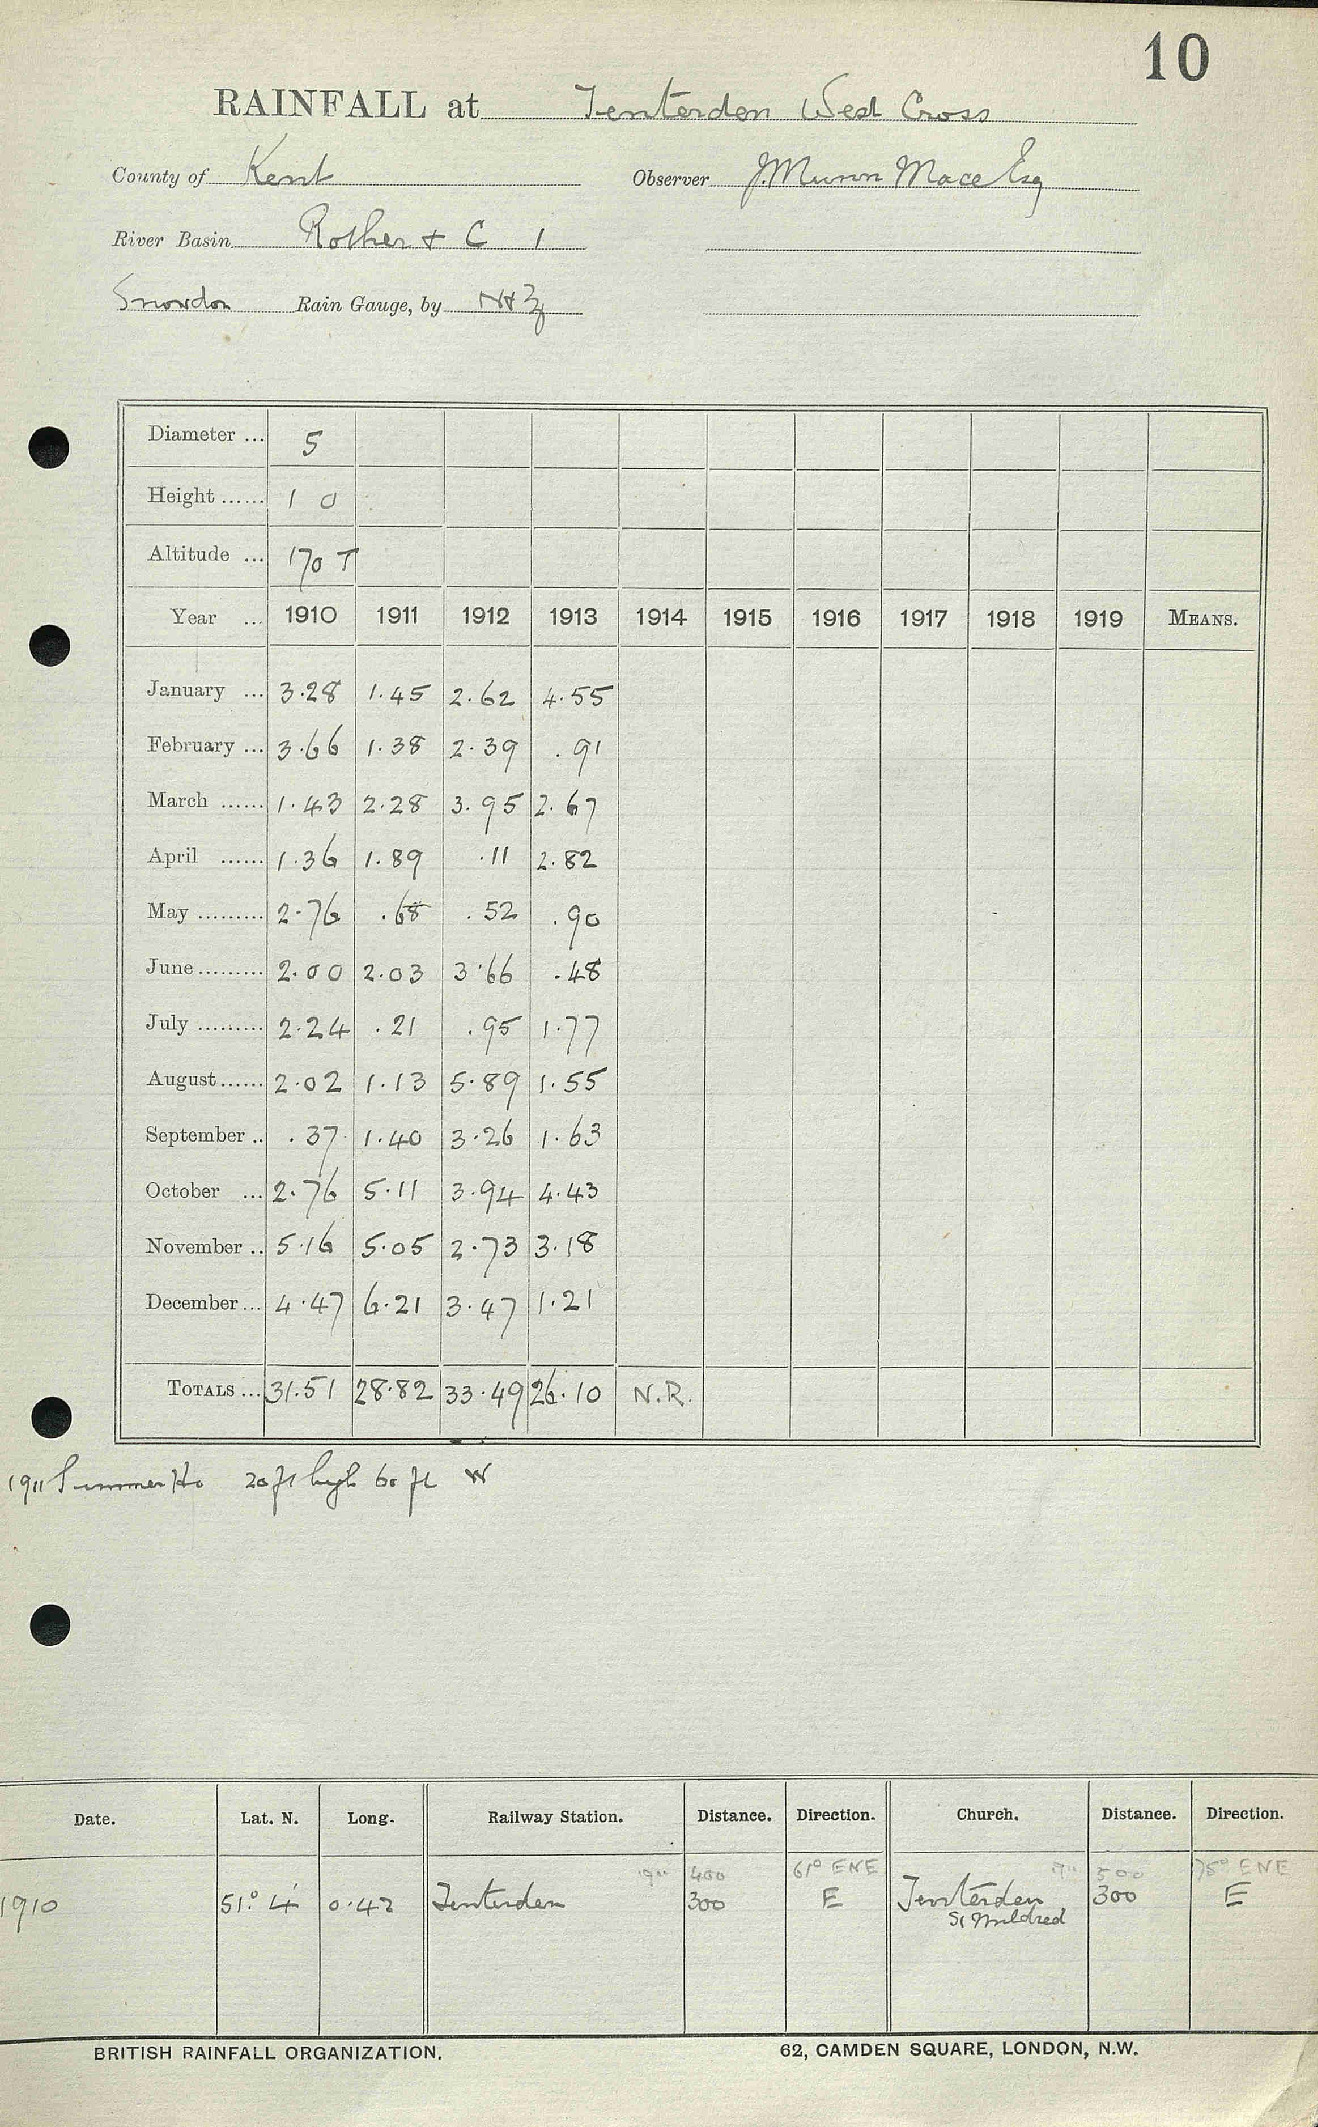 10
RAINFALL at Tenterden West Cross
County of Kent Observer J. Munn Mace Esq
River Basin Rother + C 1
Snowdon Rain Gauge, by N & Z
Diameter ... 5
Height ...... 1 0
Altitude ... 170 T
Year ... 1910 1911 1912 1913 1914 1915 1916 1917 1918 1919 MEANS.
January ... 3.28 1.45 2.62 4.55
February ... 3.66 1.38 2.39 .91
March ...... 1.43 2.28 3.95 2.67
April ...... 1.36 1.89 .11 2.82
May ......... 2.76 .68 .52 .90
June ......... 2.00 2.03 3.66 .48
July ......... 2.24 .21 .95 1.77
August ...... 2.02 1.13 5.89 1.55
September .. .37 1.40 3.26 1.63
October ... 2.76 5.11 3.94 4.43
November .. 5.16 5.05 2.73 3.18
December ... 4.47 6.21 3.47 1.21
TOTALS ... 31.51 28.82 33.49 26.10 N.R.
1911 Summer Ho 20 ft high 60 ft W
Date. Lat. N. Long. Railway Station. Distance. Direction. Church. Distance. Direction.
400 61° ENE 500 75° ENE
1910 51° 4' 0.42 Tenterden 300 E Tenterden 300 E
St Mildred
BRITISH RAINFALL ORGANIZATION. 62, CAMDEN SQUARE, LONDON, N.W.